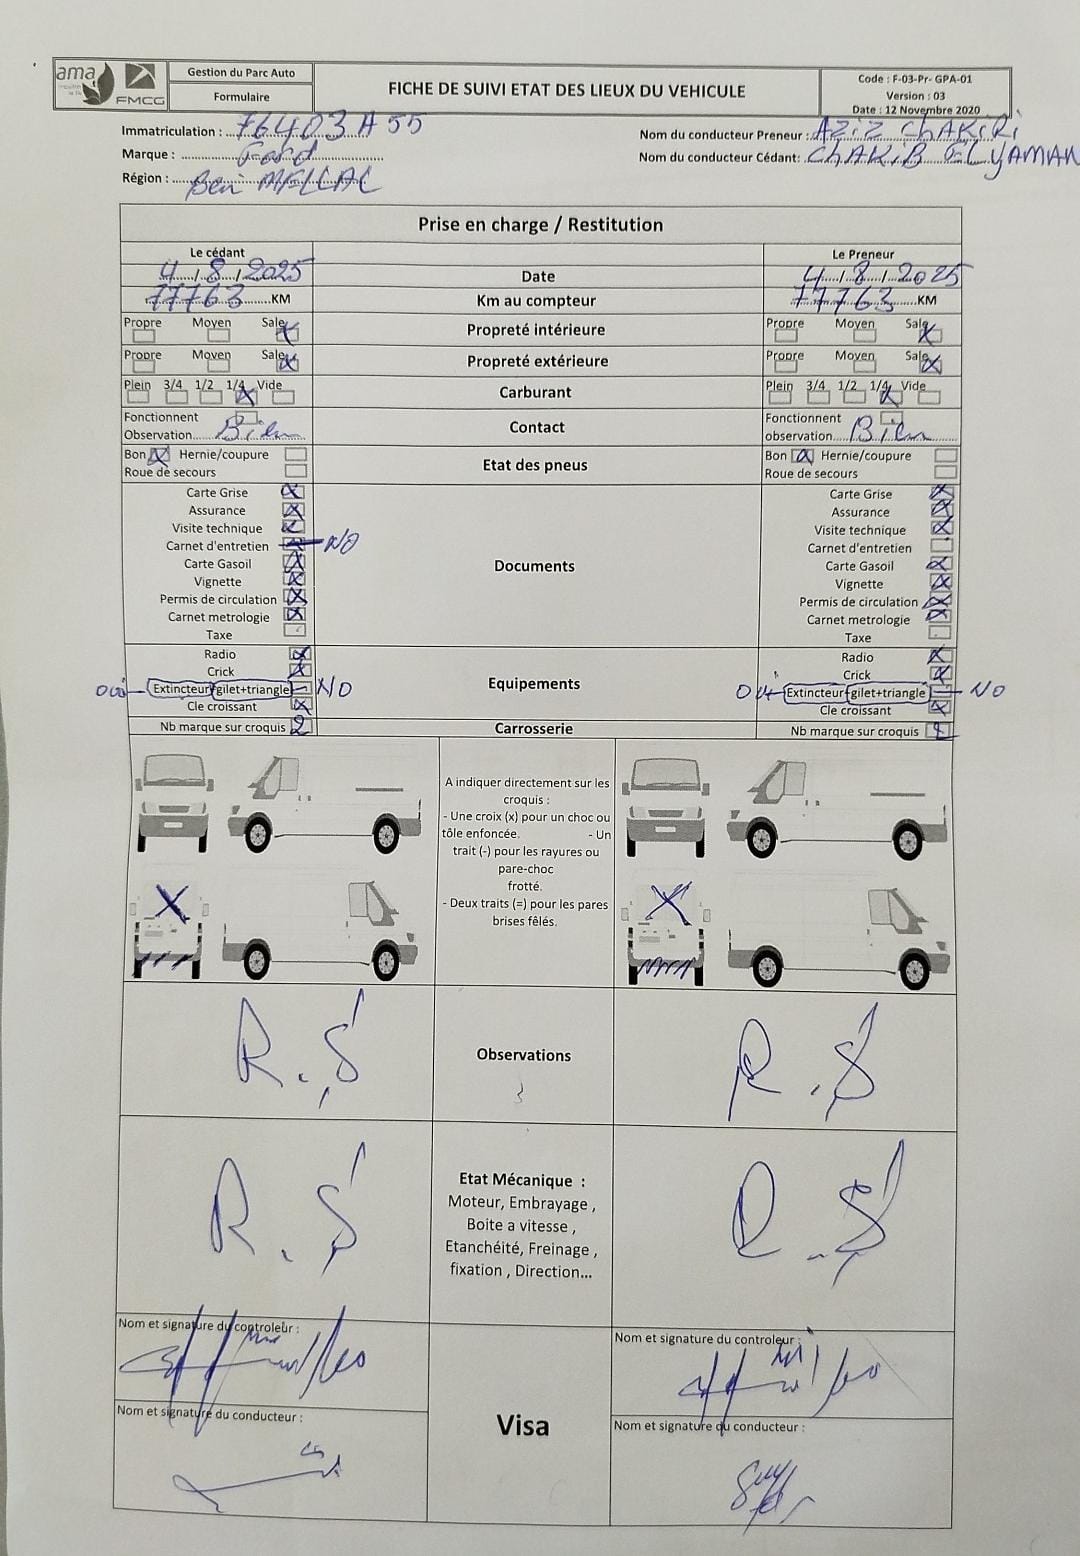 ama
FMCG
Gestion du Parc Auto
Formulaire
FICHE DE SUIVI ETAT DES LIEUX DU VEHICULE
Code : F-03-Pr- GPA-01
Version : 03
Date : 12 Novembre 2020
Immatriculation : 76403 A 55
Nom du conducteur Preneur : AZIZ CHAKIRI
Marque : Ford
Nom du conducteur Cédant: CHAKIB ELYAMAN
Région : Beni MELLAL
Prise en charge / Restitution
Le cédant
Le Preneur
4/8/2025 Date 4/8/2025
77763 KM Km au compteur 77763 KM
Propre Moyen Sale Propreté intérieure Propre Moyen Sale
Propre Moyen Sale Propreté extérieure Propre Moyen Sale
Plein 3/4 1/2 1/4 Vide Carburant Plein 3/4 1/2 1/4 Vide
Fonctionnent Contact Fonctionnent
Observation Bien observation Bien
Bon Hernie/coupure Etat des pneus Bon Hernie/coupure
Roue de secours Roue de secours
Carte Grise Carte Grise
Assurance Assurance
Visite technique Visite technique
Carnet d'entretien NO Carnet d'entretien
Carte Gasoil Documents Carte Gasoil
Vignette Vignette
Permis de circulation Permis de circulation
Carnet metrologie Carnet metrologie
Taxe Taxe
Radio Radio
Crick Crick
Extincteur gilet+triangle NO Equipements Extincteur gilet+triangle NO
Cle croissant Cle croissant
Nb marque sur croquis 2 Carrosserie Nb marque sur croquis 2
A indiquer directement sur les
croquis :
- Une croix (x) pour un choc ou
tôle enfoncée. - Un
trait (-) pour les rayures ou
pare-choc
frotté.
- Deux traits (=) pour les pares
brises fêlés.
R.S Observations R.S
R.S R.S
Etat Mécanique :
Moteur, Embrayage ,
Boite a vitesse ,
Etanchéité, Freinage ,
fixation , Direction...
Nom et signature du controleur : Nom et signature du controleur :
Nom et signature du conducteur : Visa Nom et signature du conducteur :